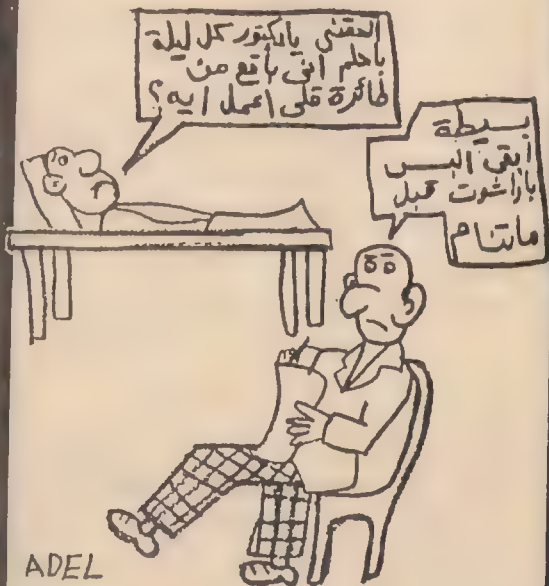 الحقني يا دكتور كل ليلة
باحلم اني باقع من
طائرة قلى اعمل ايه؟
بسيطة
ابقى البس
باراشوت قبل
ماتنام
ADEL